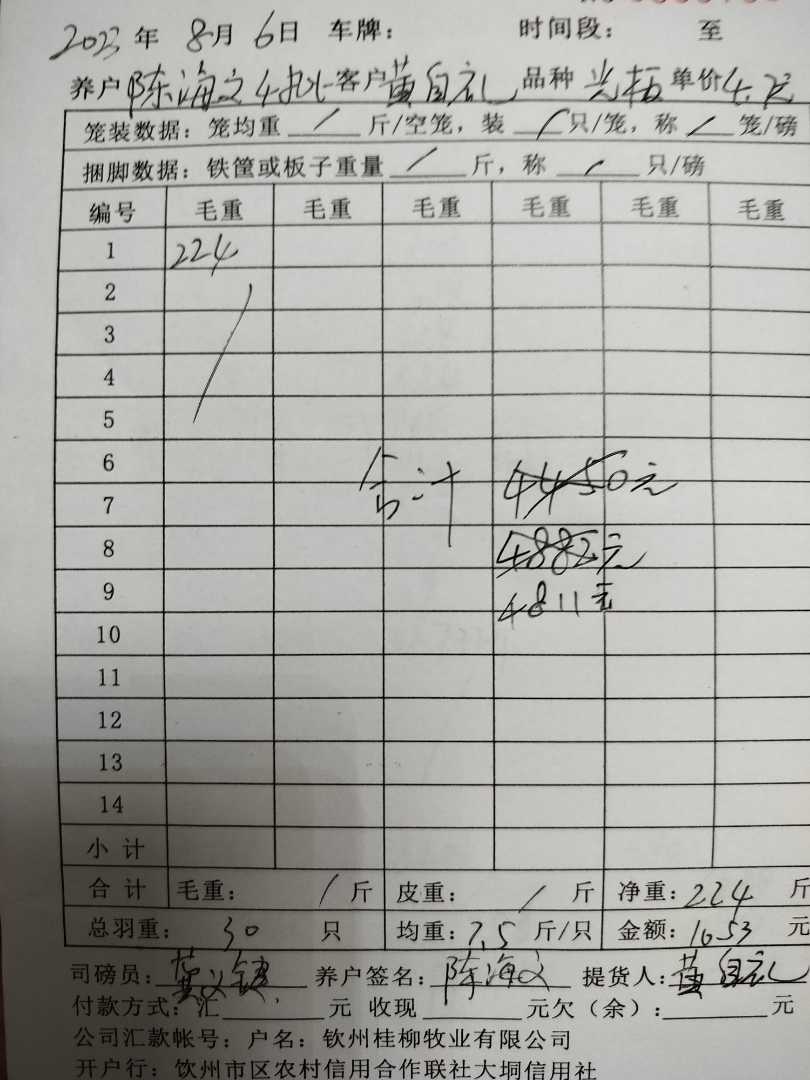 2023年 8月 6日 车牌: 时间段: 至
养户 陈海文4批 客户 黄自礼 品种 单价4.
笼装数据: 笼均重 / 斤/空笼, 装 / 只/笼, 称 / 笼/磅
捆脚数据: 铁筐或板子重量 / 斤, 称 / 只/磅
编号 毛重 毛重 毛重 毛重 毛重 毛重
1 224
2
3
4
5
6
合计 4450元
7
8 4882元
9 4811元
10
11
12
13
14
小计
合计 毛重: / 斤 皮重: / 斤 净重: 224 斤
总羽重: 30 只 均重: 7.5 斤/只 金额: 1653 元
司磅员: 黄 养户签名: 陈海文 提货人: 黄自礼
付款方式: 汇 元 收现 元欠(余): 元
公司汇款帐号: 户名: 钦州桂柳牧业有限公司
开户行: 钦州市区农村信用合作联社大垌信用社